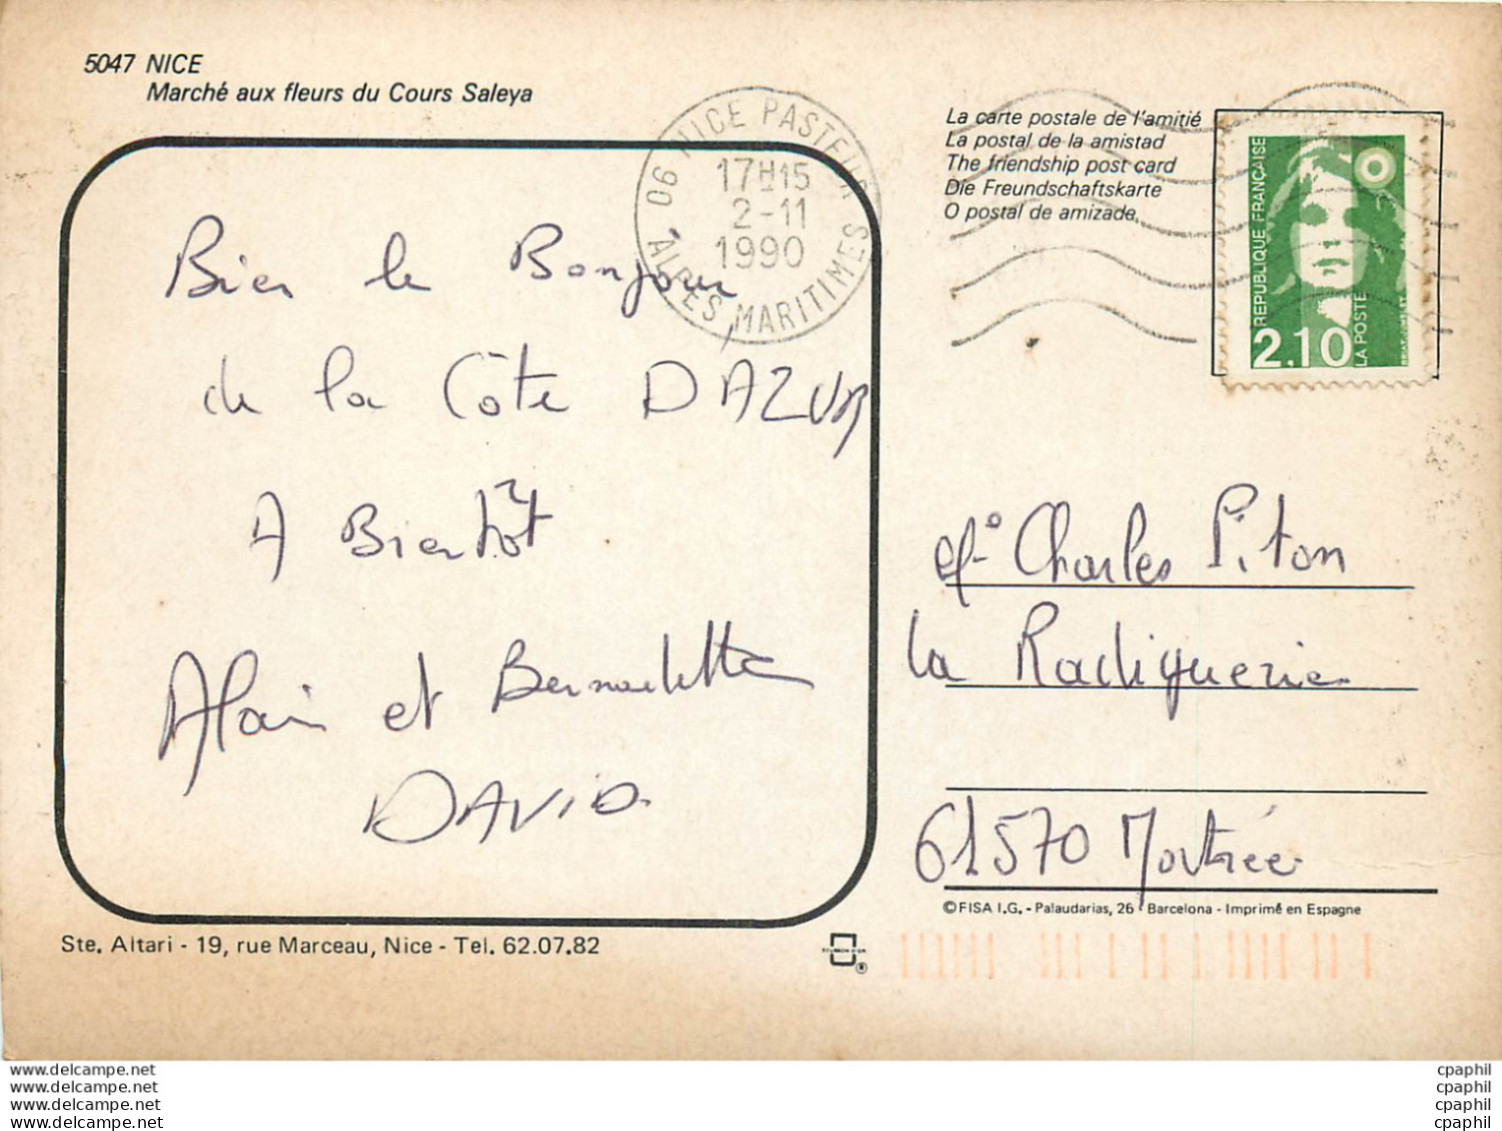 5047 NICE
Marché aux fleurs du Cours Saleya
06 NICE PASTEUR
17H15
2-11
1990
ALPES MARITIMES
La carte postale de l'amitié
La postal de la amistad
The friendship post card
Die Freundschaftskarte
O postal de amizade
REPUBLIQUE FRANÇAISE
2,10
LA POSTE
Bien le Bonjour
de la Côte D'AZUR
A Bientôt
Alain et Bernadette
DAVID
Charles Piton
la Radiguerie
61570 Mortrée
©FISA I.G. - Palaudarias, 26 - Barcelona - Imprimé en Espagne
Ste. Altari - 19, rue Marceau, Nice - Tel. 62.07.82
www.delcampe.net
www.delcampe.net
www.delcampe.net
www.delcampe.net
cpaphil
cpaphil
cpaphil
cpaphil